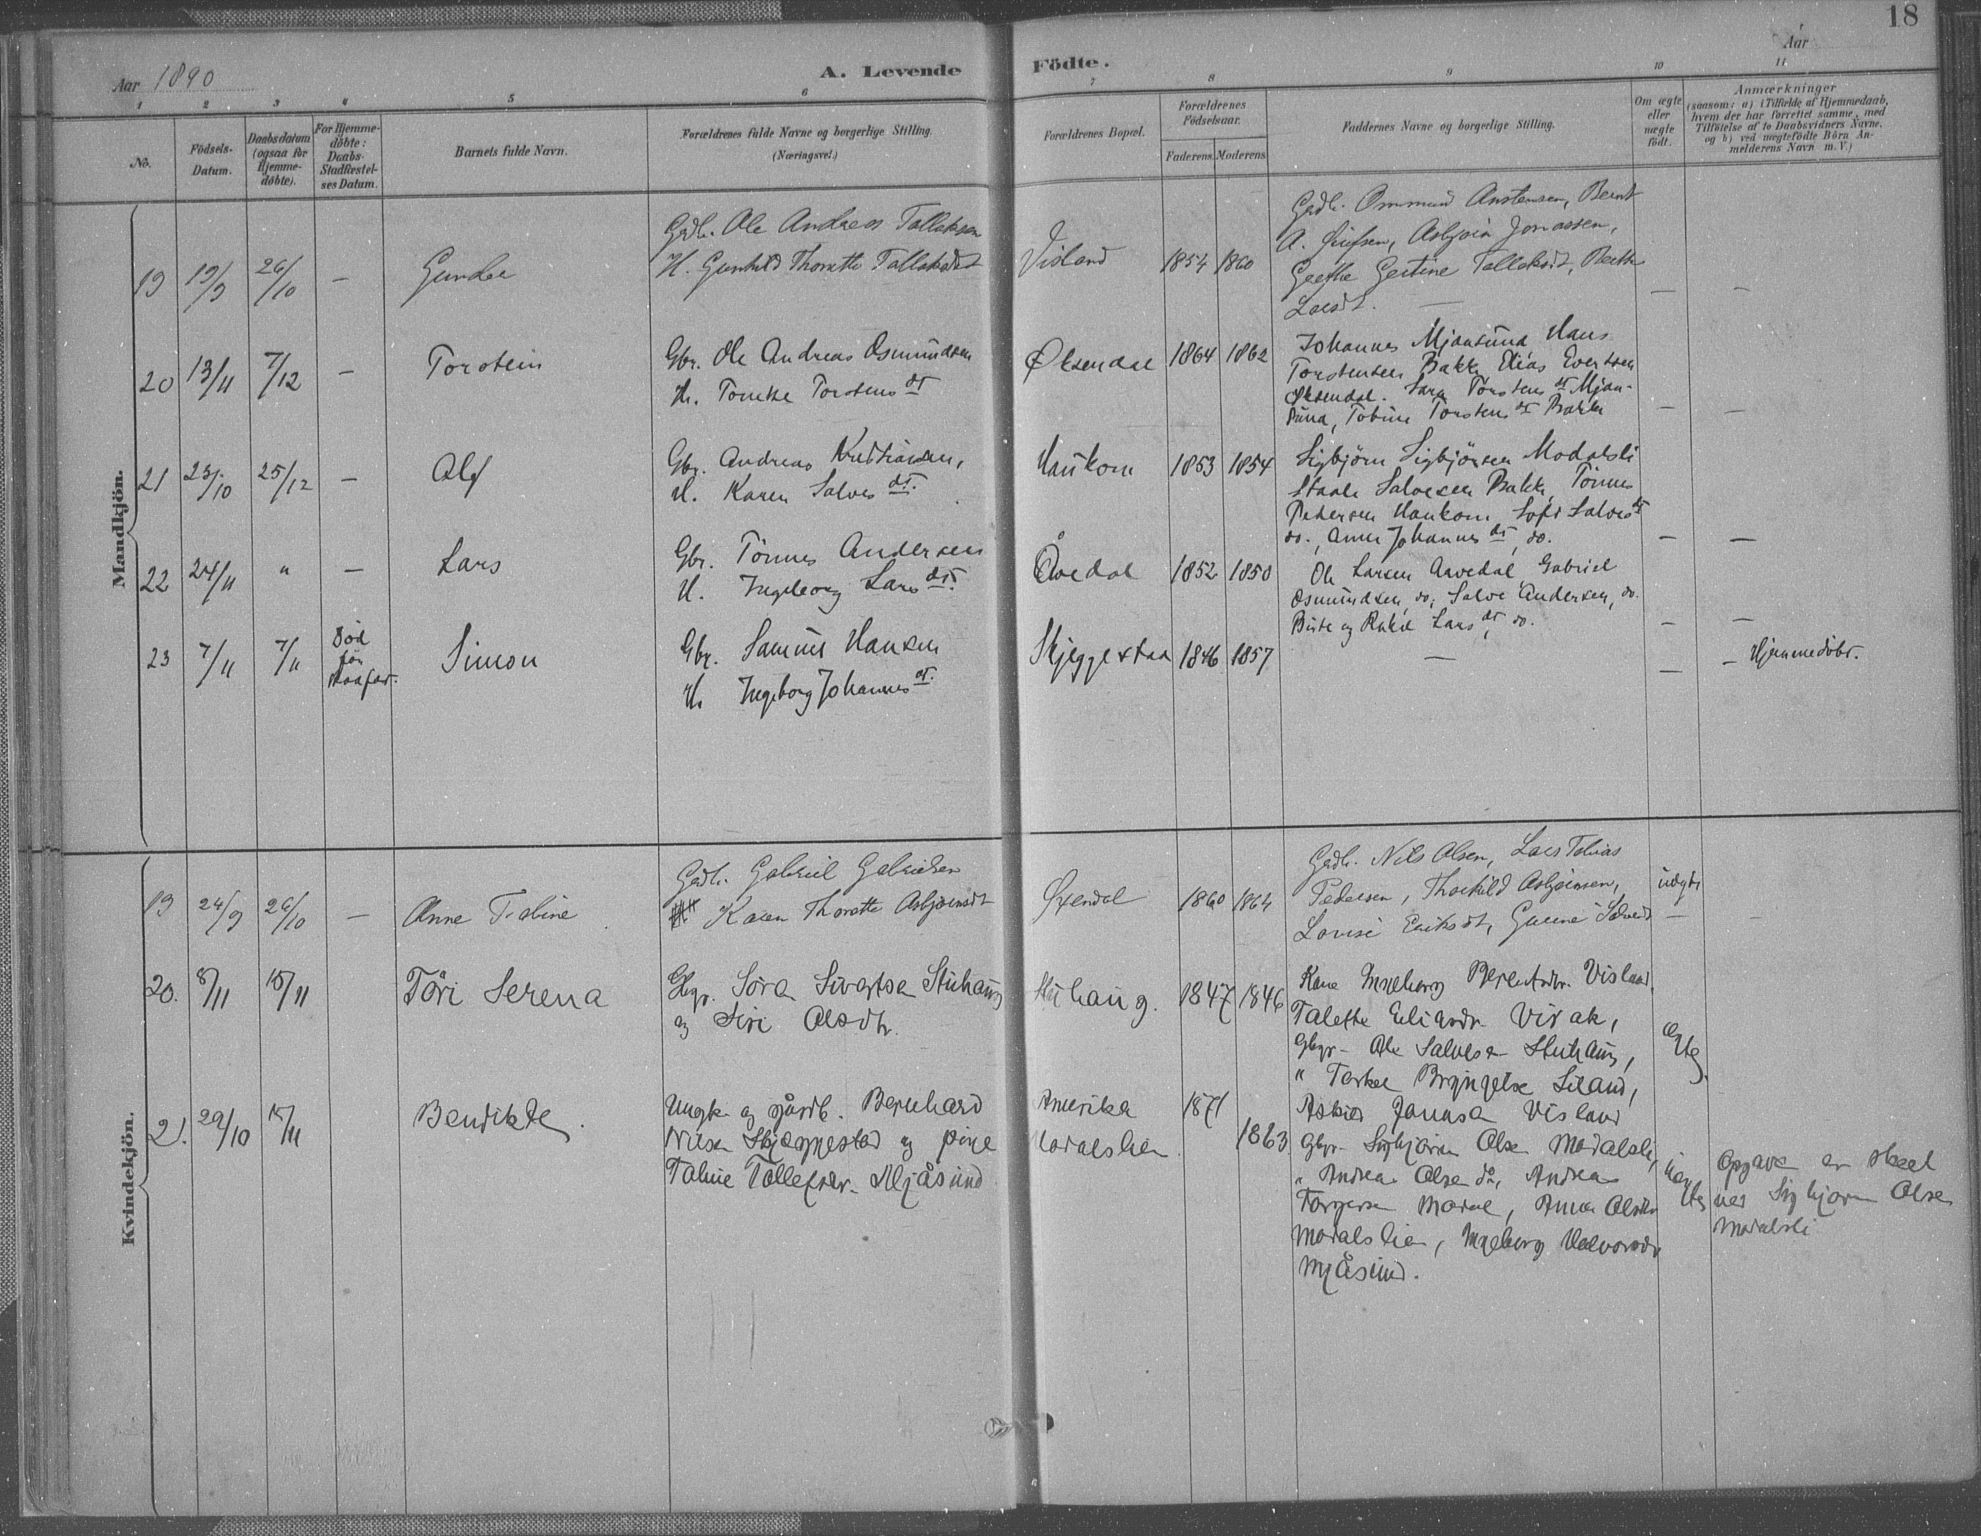 18
Aar 1890
A. Levende Födte.
Aar
1 2 3 4 5 6 7 8 9 10 11
No.
Födsels-Datum.
Daabsdatum (ogsaa for Hjemme-döbte).
For Hjemme-döbte: Daabs-Stadfæstel-ses Datum.
Barnets fulde Navn.
Forældrenes fulde Navne og borgerlige Stilling.
(Næringsvei.)
Forældrenes Bopæl.
Forældrenes Födselsaar.
Faderens. Moderens.
Faddernes Navne og borgerlige Stilling.
Om ægte eller uægte födt.
Anmærkninger
(saasom: a) i Tilfælde af Hjemmedaab,
hvem der har forrettet samme, med
Tilföielse af to Daabsvidners Navne,
og b) ved uægtefödte Börn An-
melderens Navn m. V.)
Mandkjön.
19 19/9 26/10 —
Gunder
Gdb. Ole Andreas Tallaksen
H. Gunhild Thorette Tallaksdt
Visland 1854 1860
Gdb. Ommund Anstensen, Bernt
A. Asbjørn Jonassen,
Gertine Tallaksdt,
Larsdt. —
— —
20 13/11 7/12 —
Torstein
Gbr. Ole Andreas Osmundsen
H. Tomine Torstens dt
Øksendal 1864 1862
Johannes Mjaasund Hans
Torstensen Bakke Elias Evertsen
Øksendal. Sara Torstens dt Mjaa-
sund, Tobine Torstens dt Bakke
— —
21 23/10 25/12 —
Alf
Gbr. Andreas Kristiansen,
H. Karen Salves dt.
Haukom 1853 1854
Sigbjörn Sigbjörnsen Modalsli
Staale Salvesen Bakke, Tönnes
Pedersen Haukom, Sofi Salves dt
do., Anne Johannes dt, do.
— —
22 24/11 " —
Lars
Gbr. Tönnes Andersen
H. Ingeborg Lars dt.
Åvedal 1852 1850
Ole Larsen Aavedal Gabriel
Osmundsen, do, Salve Andersen, do.
Birte og Rakel Lars dt, do.
— —
23 7/11 7/11
Död för Stadfæst.
Simon
Gbr. Samuel Hansen
H. Ingeborg Johannes dt.
Skjeggestad 1846 1857
—
— — Hjemmedöbt.
Kvindekjön.
19 24/9 26/10 —
Anne Tobine
Gdb. Gabriel Gabrielsen
Karen Thorette Asbjørnsdt
Øxendal 1860 1864
Gdb. Nils Olsen, Lars Tobias
Pedersen, Thorkild Asbjørnsen,
Lovise Eriksdt, Gunne Salvesdt
— —
20. 8/11 15/11
Tåri Serena
Gbgr. Søren Sivertsen Stuhaug
og Siri Olsdtr.
Stuhaug. 1847 1846
Kone Ingeborg Berentsdtr. Visland.
Talette Eliasdr. Virak,
Gbgr. Ole Salvesen Stuhaug,
" Terkel Bryngelsen Sirland,
Asbjør Jonasen Visland
ægte.
21. 29/10 15/11
Bendikte
Ungk. og gårdb. Bernhard
Nilsen Skjæggestad og pige
Taline Tollefsdr. Mjåsund
Amerika
Modalslien 1871
1863
Gbgr. Sigbjørn Olsen Modalsli,
" Andreas Olsen do, Andreas
Torgersen Modal, Anne Olsdtr
Modalslien, Ingeborg Halvorsdr
Mjåsund.
uægte
Opgaven er skeet
ved Sigbjørn Olsen
Modalsli